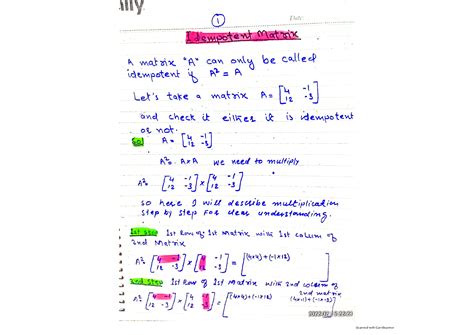 ①
Date:
Idempotent Matrix
A matrix "A" can only be called
idempotent if A² = A
Let's take a matrix A = [4 -1
12 -3]
and check it eilker it is idempotent
or not.
Sol A = [4 -1
12 -3]
A² = A×A we need to multiply
A² = [4 -1
12 -3] × [4 -1
12 -3]
so here I will describe multiplication
step by step For clear understanding.
1st step 1st Row of 1st Matrix with 1st column of
2nd Matrix
A² = [4 -1
12 -3] × [4 -1
12 -3] = [(4×4)+(-1×12)
2nd step 1st Row of 1st Matrix with 2nd column of
2nd matrix
A² = [4 -1
12 -3] × [4 -1
12 -3] = [(4×4)+(-1×12) (4×-1)+(-1×-3)
Scanned with CamScanner